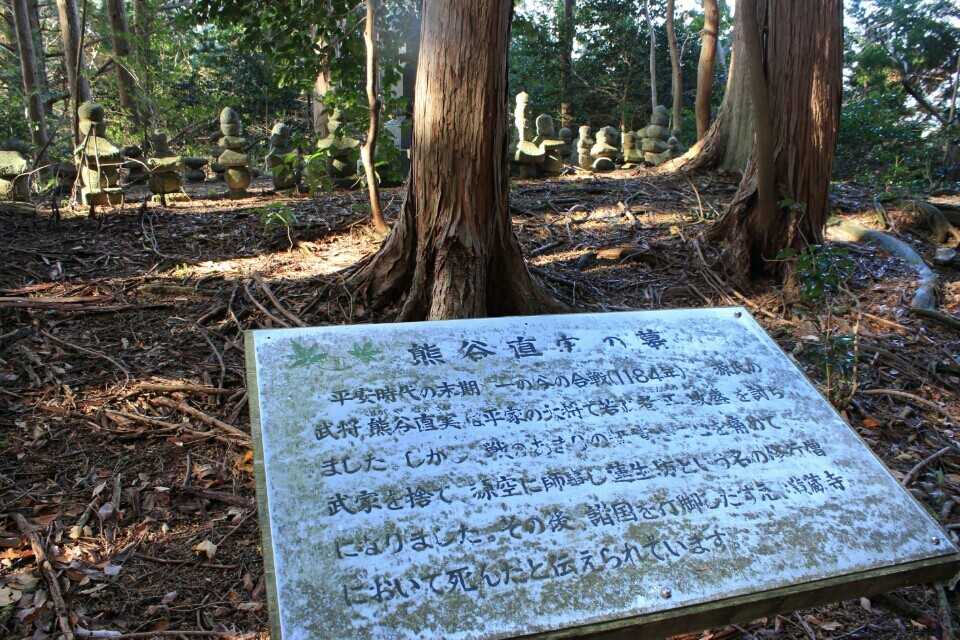 熊谷直実の墓
平安時代の末期 一の谷の合戦(1184年)、源氏の
武将 熊谷直実は平家の大将で若い 敦盛を討ち
ました しかし 戦のあまりの に心を痛めて
武家を捨て、源空に師事し蓮生坊という名の修行僧
になりました。その後、諸国を行脚したすえ、
において死んだと伝えられています